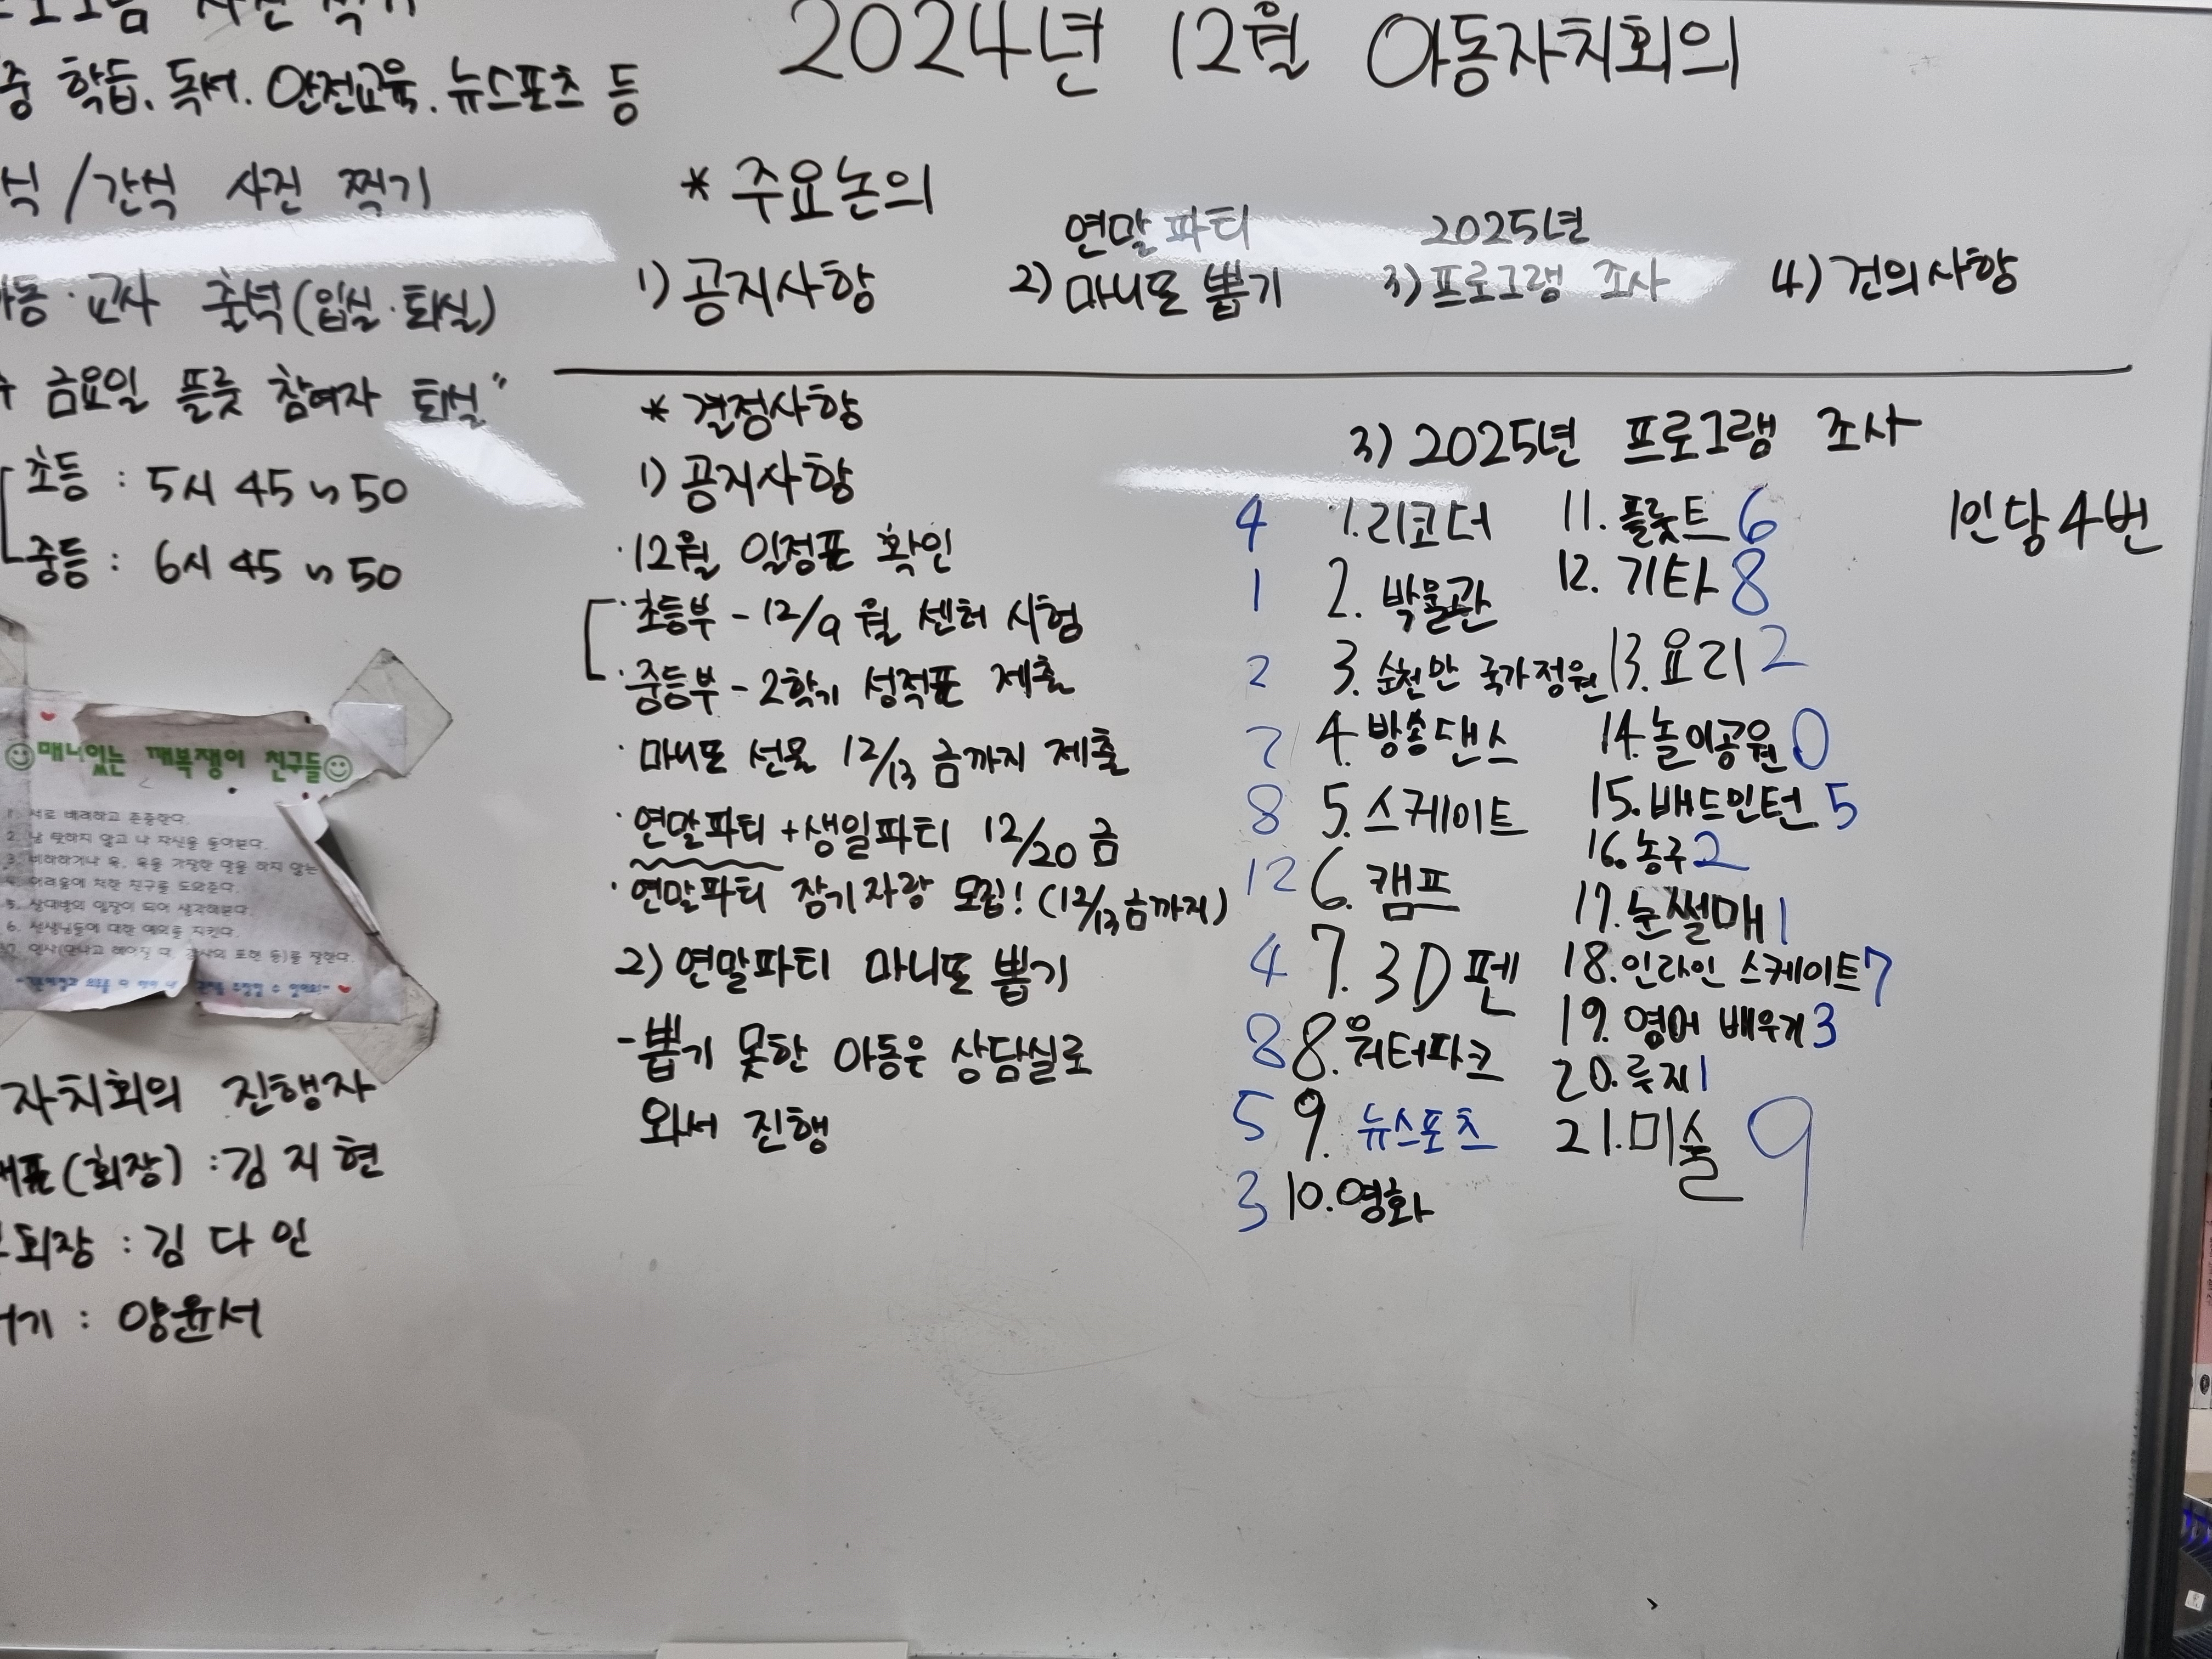 중 학습. 독서. 안전교육. 뉴스포츠 등
/간식 사진 찍기
교사 출석(입실·퇴실)
금요일 플룻 참여자 퇴실"
초등 : 5시 45~50
중등 : 6시 45~50
매너있는 깨복쟁이 친구들
1. 서로 배려하고 존중한다.
2. 남 탓하지 않고 나 자신을 돌아본다.
3. 비하하거나 욕, 욕을 가장한 말을 하지 않는
4. 어려움에 처한 친구를 도와준다.
5. 상대방의 입장이 되어 생각해본다.
6. 선생님들에 대한 예의를 지킨다.
7. 인사(만나고 헤어질 때, 감사의 표현 등)를 잘한다.
자치회의 진행자
(회장) : 김지현
: 김다인
: 양윤서
2024년 12월 아동자치회의
* 주요논의
1) 공지사항
2) 연말파티 마니또 뽑기
3) 2025년 프로그램 조사
4) 건의사항
* 결정사항
1) 공지사항
· 12월 일정표 확인
· 초등부 - 12/9 월 센터 시험
· 중등부 - 2학기 성적표 제출
· 마니또 선물 12/13 금까지 제출
· 연말파티 + 생일파티 12/20 금
· 연말파티 장기자랑 모집! (12/13 금까지)
2) 연말파티 마니또 뽑기
- 뽑기 못한 아동은 상담실로
와서 진행
3) 2025년 프로그램 조사
1인당 4번
4 1. 리코더
1 2. 박물관
2 3. 순천만 국가정원
7 4. 방송댄스
8 5. 스케이트
12 6. 캠프
4 7. 3D펜
8 8. 워터파크
5 9. 뉴스포츠
3 10. 영화
11. 플룻트 6
12. 기타 8
13. 요리 2
14. 놀이공원 0
15. 배드민턴 5
16. 농구 2
17. 눈썰매 1
18. 인라인 스케이트 7
19. 영어 배우기 3
20. 루지 1
21. 미술 9